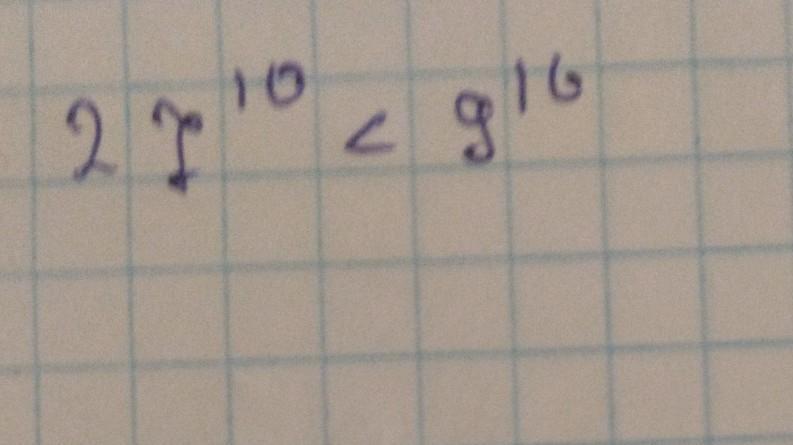 27¹⁰ < 9¹⁶